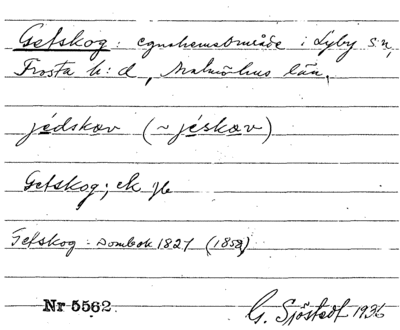 Getskog: egnahemsområde i Lyby s:n,
Frosta h:d, Malmöhus län.
jédskɑv (~ jéskɑv)
Getskog; ek
Getskog: Jordebok 1827 (1858)
Nr 5562. G. Sjöstedt 1936